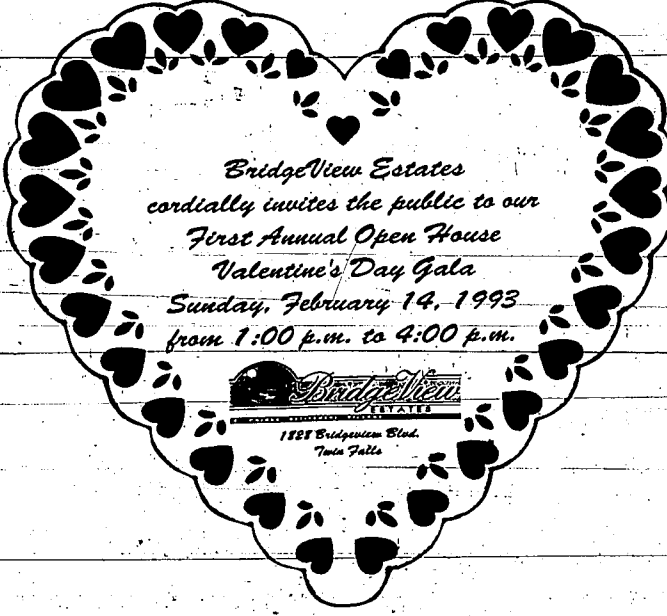 BridgeView Estates
cordially invites the public to our
First Annual Open House
Valentine's Day Gala
Sunday, February 14, 1993
from 1:00 p.m. to 4:00 p.m.
BridgeView
ESTATES
1828 Bridgeview Blvd.
Twin Falls